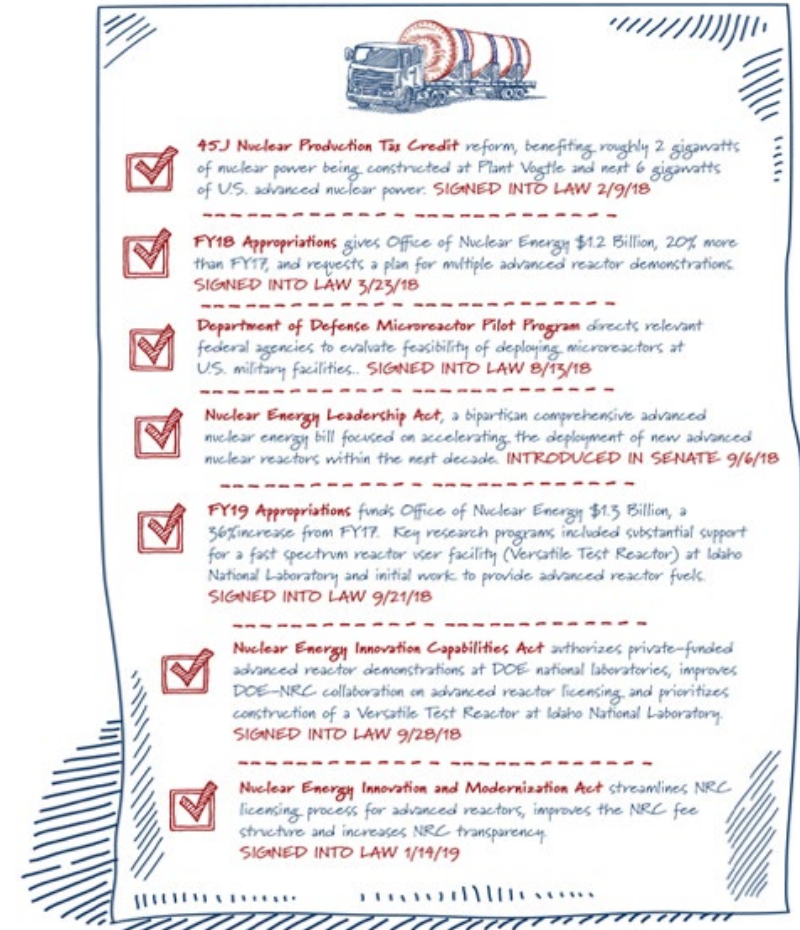 45J Nuclear Production Tax Credit reform, benefiting roughly 2 gigawatts
of nuclear power being constructed at Plant Vogtle and next 6 gigawatts
of U.S. advanced nuclear power. SIGNED INTO LAW 2/9/18
FY18 Appropriations gives Office of Nuclear Energy $1.2 Billion, 20% more
than FY17, and requests a plan for multiple advanced reactor demonstrations.
SIGNED INTO LAW 3/23/18
Department of Defense Microreactor Pilot Program directs relevant
federal agencies to evaluate feasibility of deploying microreactors at
U.S. military facilities.. SIGNED INTO LAW 8/13/18
Nuclear Energy Leadership Act, a bipartisan comprehensive advanced
nuclear energy bill focused on accelerating the deployment of new advanced
nuclear reactors within the next decade. INTRODUCED IN SENATE 9/6/18
FY19 Appropriations funds Office of Nuclear Energy $1.3 Billion, a
36%increase from FY17. Key research programs included substantial support
for a fast spectrum reactor user facility (Versatile Test Reactor) at Idaho
National Laboratory and initial work to provide advanced reactor fuels.
SIGNED INTO LAW 9/21/18
Nuclear Energy Innovation Capabilities Act authorizes private-funded
advanced reactor demonstrations at DOE national laboratories, improves
DOE-NRC collaboration on advanced reactor licensing and prioritizes
construction of a Versatile Test Reactor at Idaho National Laboratory.
SIGNED INTO LAW 9/28/18
Nuclear Energy Innovation and Modernization Act streamlines NRC
licensing process for advanced reactors, improves the NRC fee
structure and increases NRC transparency.
SIGNED INTO LAW 1/14/19